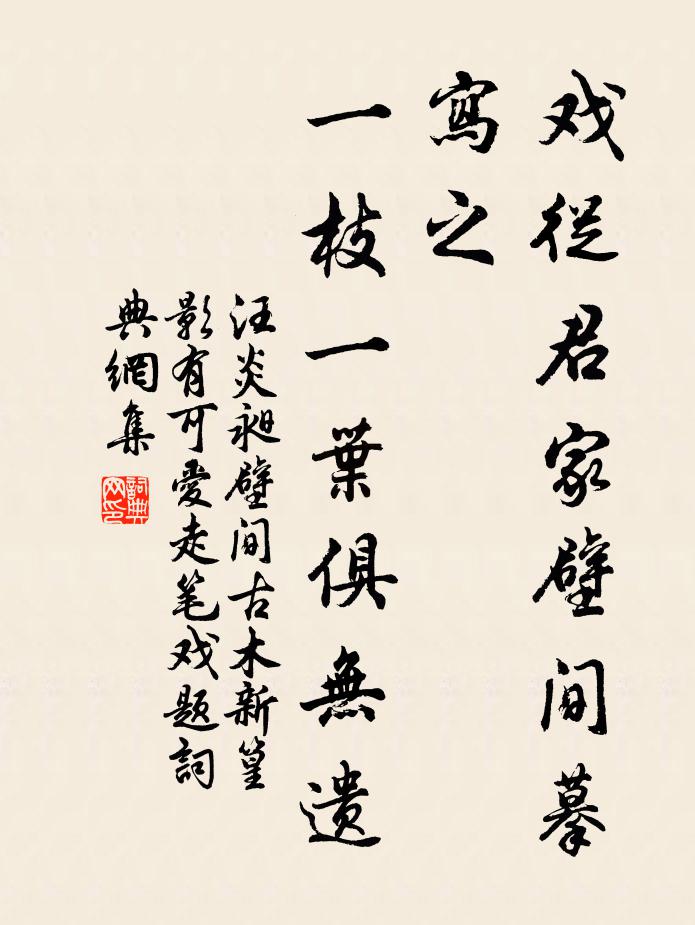 戏從君家壁间摹
寫之
一枝一葉俱無遺
汪炎昶壁间古木新篁
影有可愛走笔戏题詞
典網集
詞典网印